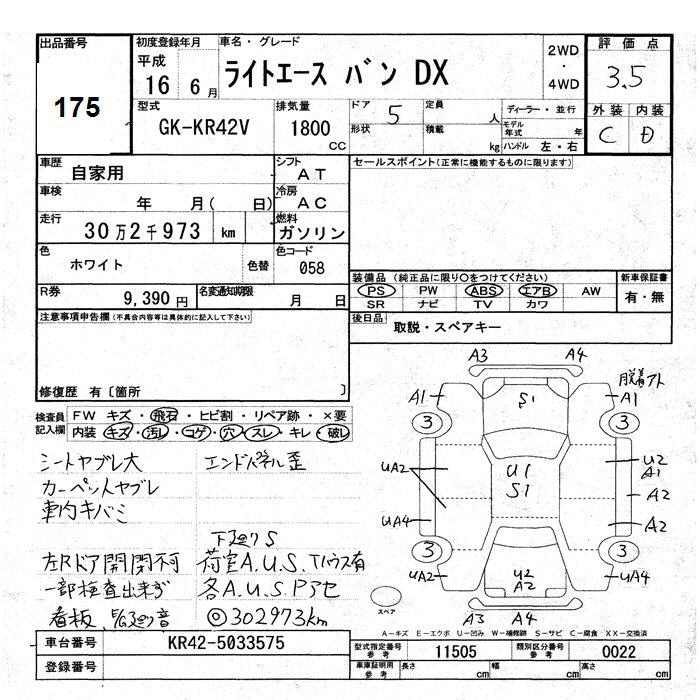 出品番号
175
初度登録年月
平成
16 6月
車名・グレード
ライトエース バン DX
2WD
・
4WD
評価点
3.5
型式
GK-KR42V
排気量
1800
CC
ドア
5
定員
人
形状
積載
kg
ディーラー・並行
モデル
年式
年
ハンドル 左・右
外装 内装
C D
車歴
自家用
シフト
AT
車検
年 月( 日)
冷房
AC
走行
30万2千973 km
燃料
ガソリン
色
ホワイト
色替
色コード
058
R券
9,390円
名変通知期限
月 日
セールスポイント(正常に機能するものに限ります)
装備品 (純正品に限り○をつけてください)
PS PW ABS エアB AW
SR ナビ TV カワ
新車保証書
有・無
後日品
取説・スペアキー
注意事項申告欄(不具合内容等は具体的に記入して下さい)
修復歴 有〔箇所 〕
検査員
記入欄
FW キズ・飛石・ヒビ割・リペア跡・×要
内装 キズ・汚レ・コゲ・穴・スレ・キレ・破レ
シートヤブレ大
カーペットヤブレ
車内キバミ
エンドパネル歪
下廻りS
左Rドア開閉不可
荷室A.U.S.Tハウス有
一部検査出来ず
各A.U.S.Pアセ
◎302973km
A3 A4
S1
脱着アト
A1 A1
3 3
UA2
U1
S1
U2
A1
A2
UA4
A2
3 3
UA2
U2
A2
UA4
スペア
A3 A4
A-キズ E-エクボ U-凹み W-補修跡 S-サビ C-腐食 XX-交換済
車台番号
KR42-5033575
登録番号
型式指定番号
参考
11505
類別区分番号
参考
0022
車庫証明用
参考
長さ cm
幅 cm
高さ cm